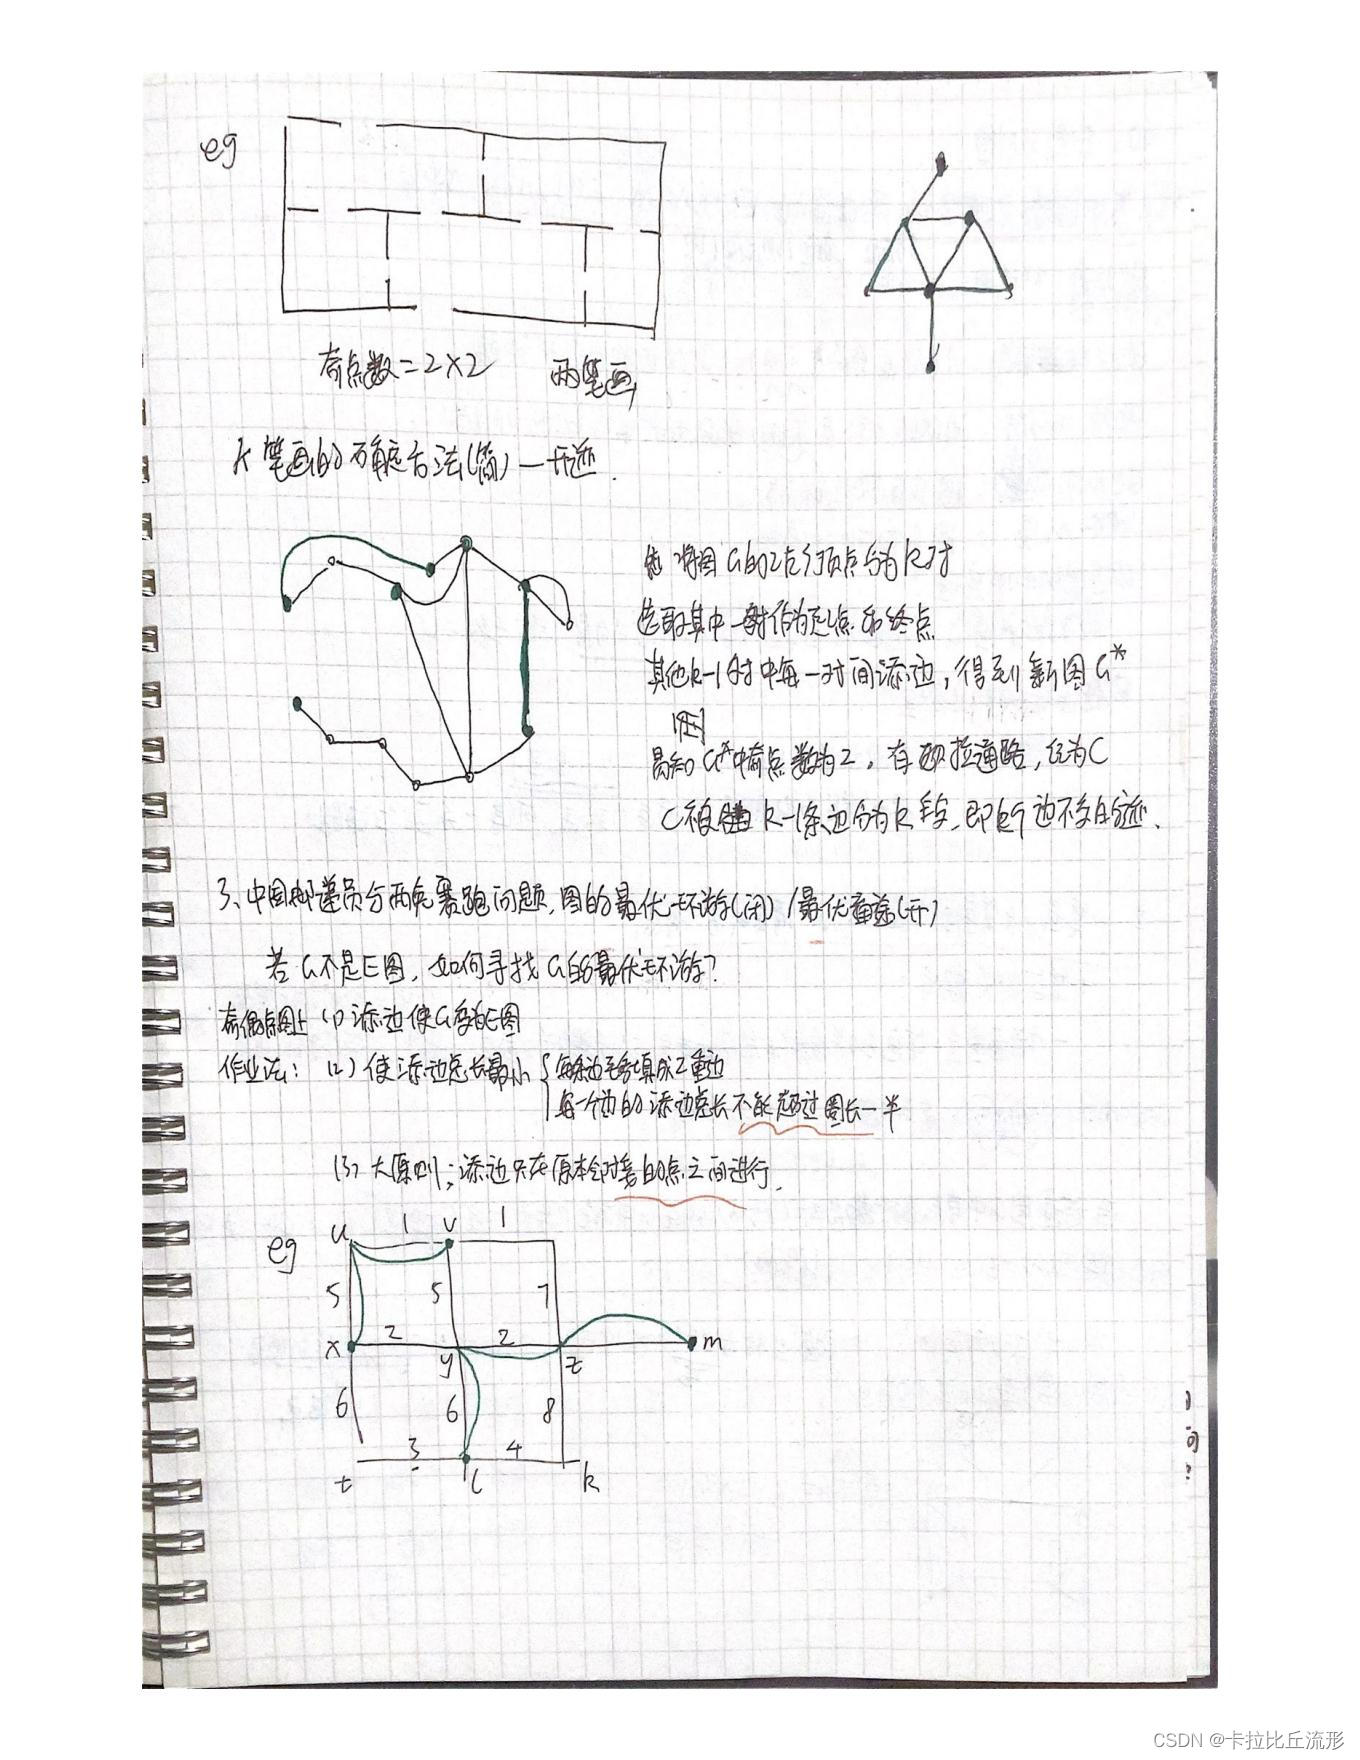 eg
奇点数=2×2 两笔画
k笔画的 确定方法(简)—开迹.
先将图G的2k个顶点分为k对
选取其中一对作为起点和终点
其他k-1对中每一对间添边,得到新图G*
则
易知G*中奇点数为2,存欧拉通路,红为C
C被 k-1条边分为k段,即k个边不交的迹.
3、中国邮递员分两免赛跑问题,图的最优环游(闭)/最优 (开)
若G不是E图,如何寻找G的最优环游?
奇偶点图上 (1) 添边使G变为E图
作业法: (2) 使添边总长最小 每条边 成2重边
每一个 的添边总长不能超过圈长一半
(3) 大原则:添边只在原本邻接的点之间进行.
eg u 1 v 1
5 5 7
x 2 y 2 z m
6 6 8
t 3 l 4 k
问
?
CSDN @卡拉比丘流形